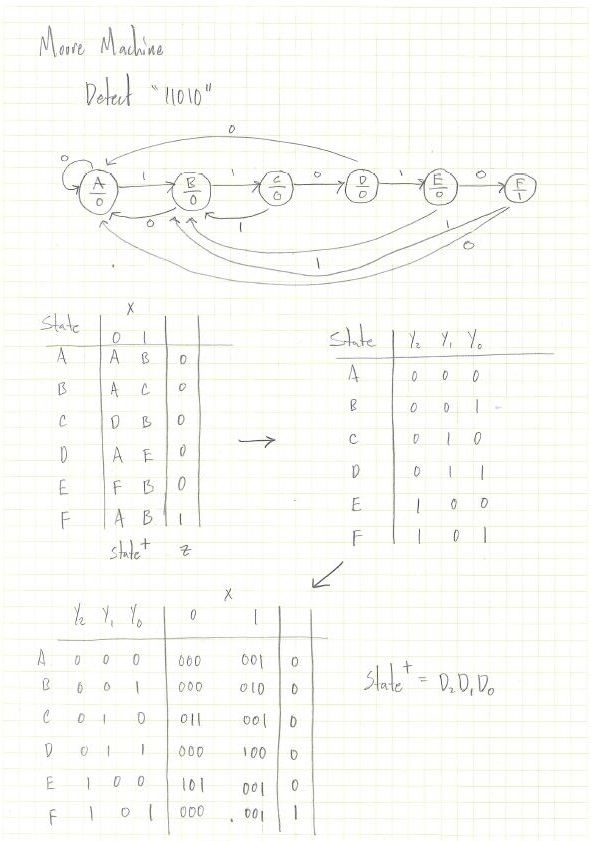 Moore Machine
Detect "11010"
0
0 1 1 0 1 0
A B C D E F
0 0 0 0 0 1
0 1 1 0
1
X
State 0 1
A A B 0
B A C 0
C D B 0
D A E 0
E F B 0
F A B 1
State+ Z
State Y2 Y1 Y0
A 0 0 0
B 0 0 1
C 0 1 0
D 0 1 1
E 1 0 0
F 1 0 1
X
Y2 Y1 Y0 0 1
A 0 0 0 000 001 0
B 0 0 1 000 010 0
C 0 1 0 011 001 0
D 0 1 1 000 100 0
E 1 0 0 101 001 0
F 1 0 1 000 001 1
State+ = D2D1D0